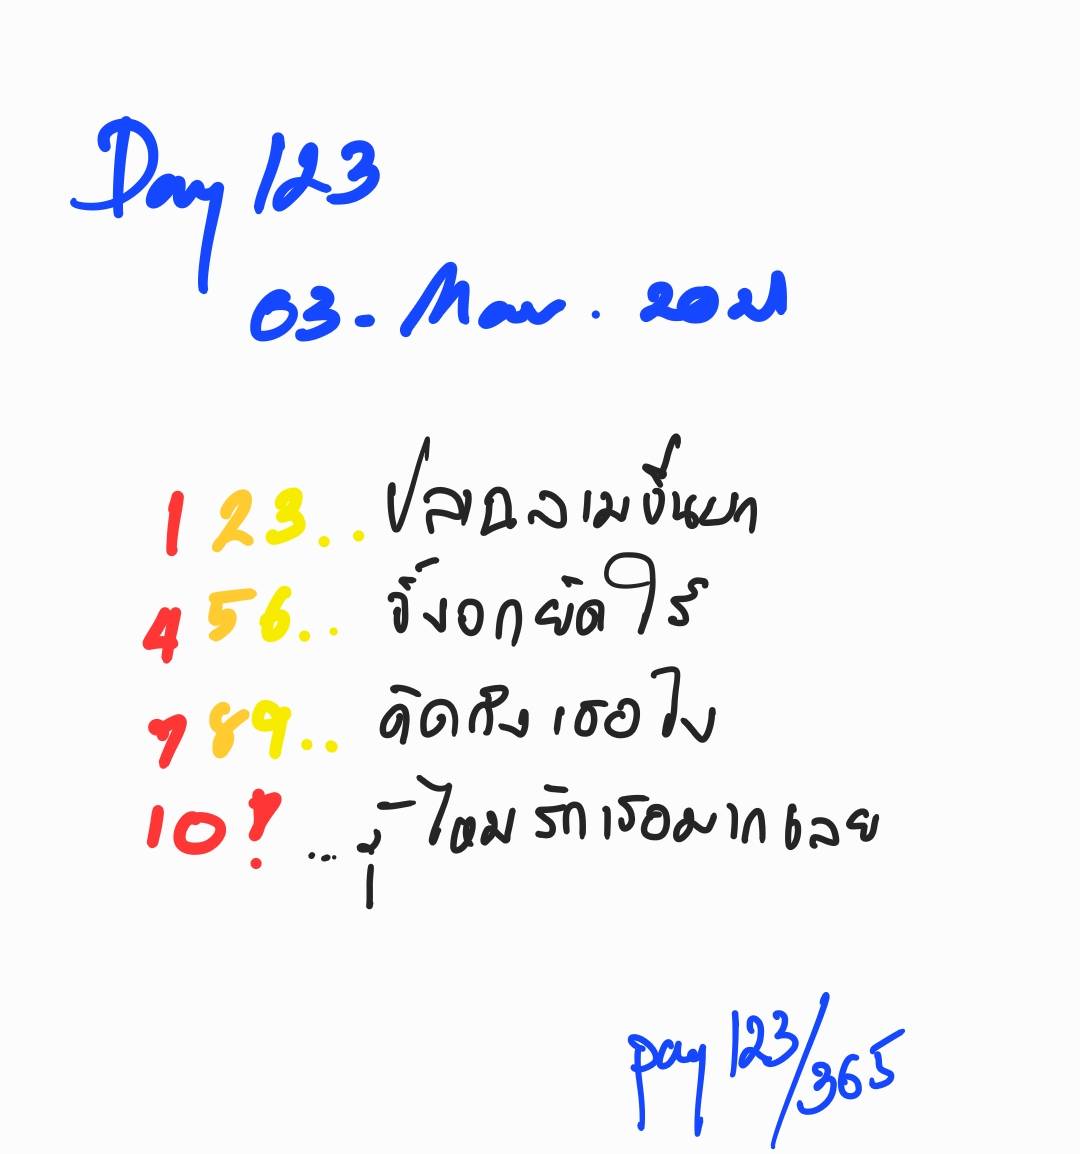 Day 123
03 - Mar . 2021
1 2 3 . . ปลาฉลามขึ้นบก
4 5 6 . . จิ้งจกยัดไส้
7 8 9 . . คิดถึงเธอไง
10 ? ... รู้ไหมรักเธอมากเลย
Day 123/365